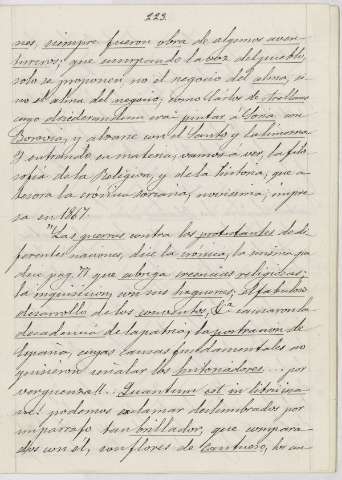 223.
nes, siempre fueron obra de algunos aven-
tureros; que usurpando la voz del pueblo,
solo se proponen, no el negocio del alma, si-
no el alma del negocio; como llá los de Arellano
cuyo desideratum era: juntar á Soria con
Boravia, y alzarse con el Santo y la limosna
Y entrando en materia, vamos á ver, la filo-
sofia de la Religion, y de la historia, que a-
tesora la crónica soriana, novisima; impre-
sa en 1867.
"Las guerras contra los protestantes de di-
ferentes naciones, dice la crónica, la misma pa-
dece pag. 77 que abriga creencias religiosas;
la inquisicion, con sus hogueras; el fabuloso
desarrollo de los conventos, &ª causaron la
decadencia de la patria, la postracion de
España, cuyas causas fundamentales no
quisieron señalar los historiadores... por
verguenza!!. Quantum est in
nos! podemos esclamar deslumbrados por
un párrafo tan brillador, que compara-
dos con él, son flores de Cantueso, los